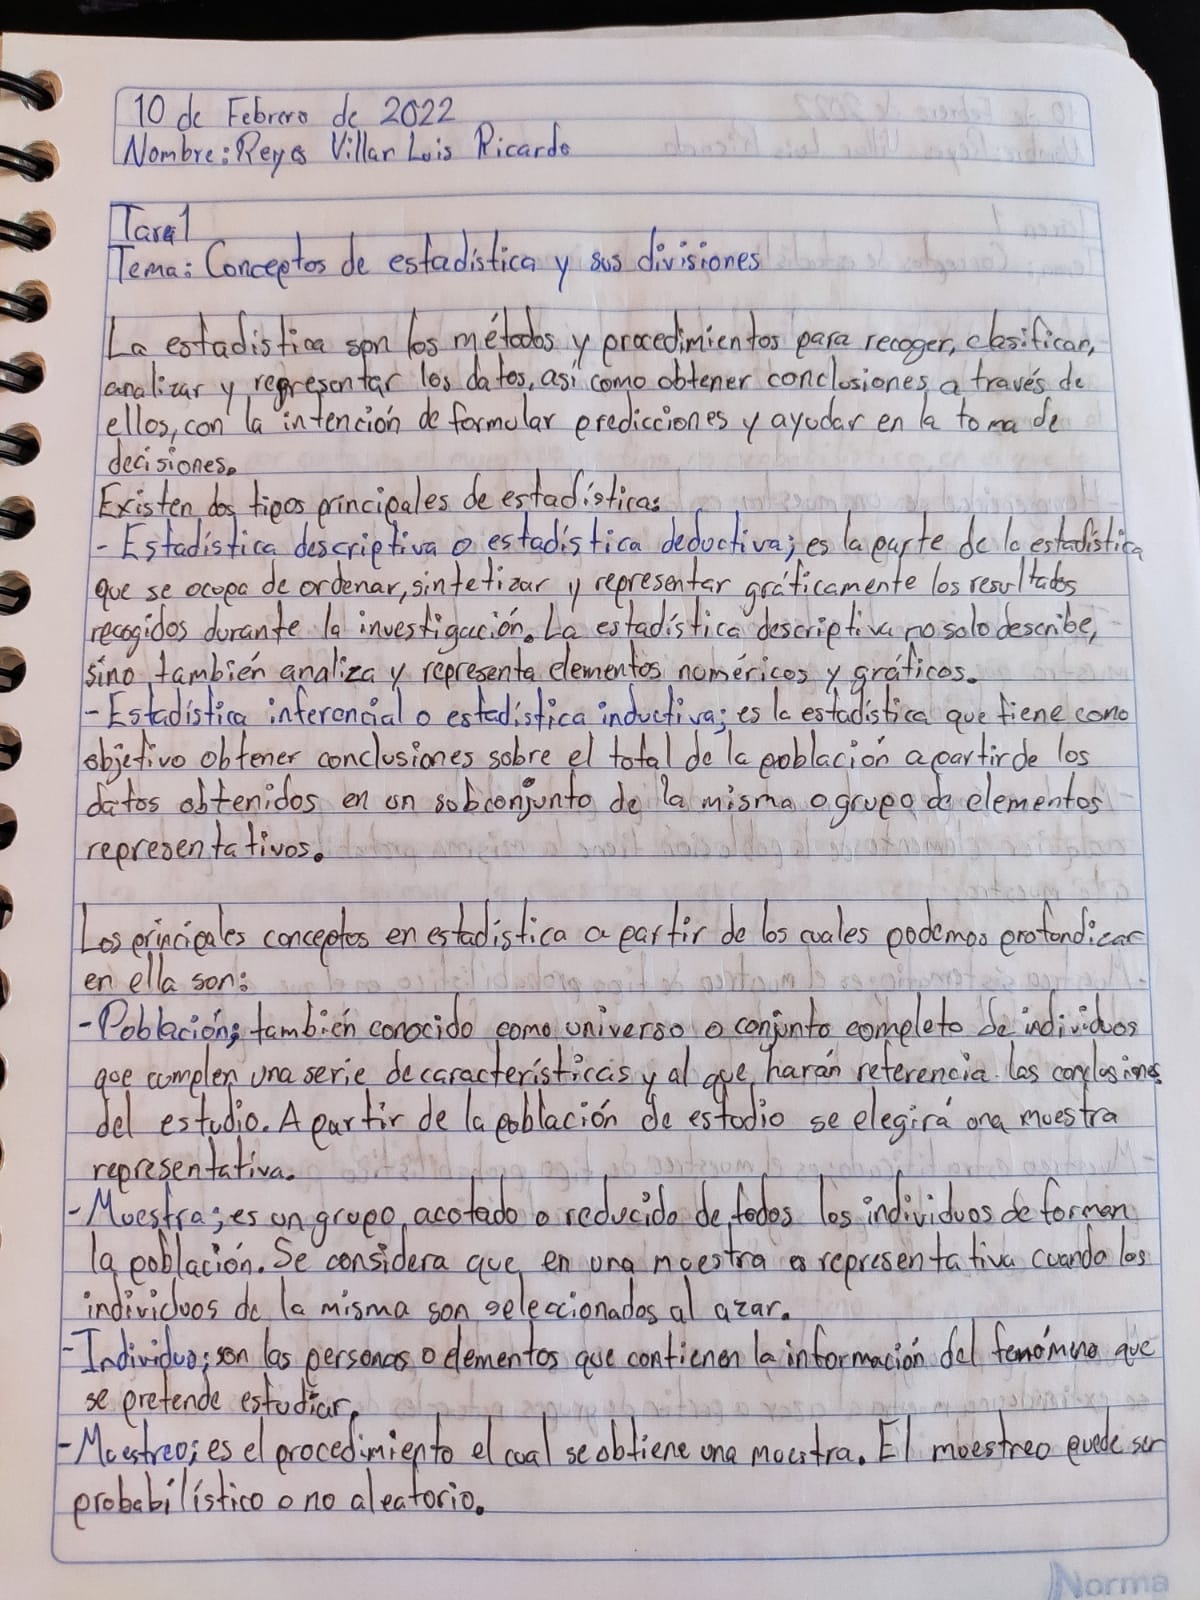 10 de Febrero de 2022
Nombre: Reyes Villar Luis Ricardo
Tarea 1
Tema: Conceptos de estadística y sus divisiones
La estadística son los métodos y procedimientos para recoger, clasificar,
analizar y representar los datos, así como obtener conclusiones a través de
ellos, con la intención de formular predicciones y ayudar en la toma de
decisiones.
Existen dos tipos principales de estadística:
- Estadística descriptiva o estadística deductiva; es la parte de la estadística
que se ocupa de ordenar, sintetizar y representar gráficamente los resultados
recogidos durante la investigación. La estadística descriptiva no solo describe,
sino también analiza y representa elementos numéricos y gráficos.
- Estadística inferencial o estadística inductiva; es la estadística que tiene como
objetivo obtener conclusiones sobre el total de la población a partir de los
datos obtenidos en un subconjunto de la misma o grupo de elementos
representativos.
Los principales conceptos en estadística a partir de los cuales podemos profundizar
en ella son:
- Población; también conocido como universo o conjunto completo de individuos
que cumplen una serie de características y al que harán referencia las conclusiones
del estudio. A partir de la población de estudio se elegirá una muestra
representativa.
- Muestra; es un grupo acotado o reducido de todos los individuos de forman
la población. Se considera que en una muestra es representativa cuando los
individuos de la misma son seleccionados al azar.
- Individuo; son las personas o elementos que contienen la información del fenómeno que
se pretende estudiar.
- Muestreo; es el procedimiento el cual se obtiene una muestra. El muestreo puede ser
probabilístico o no aleatorio.
Norma